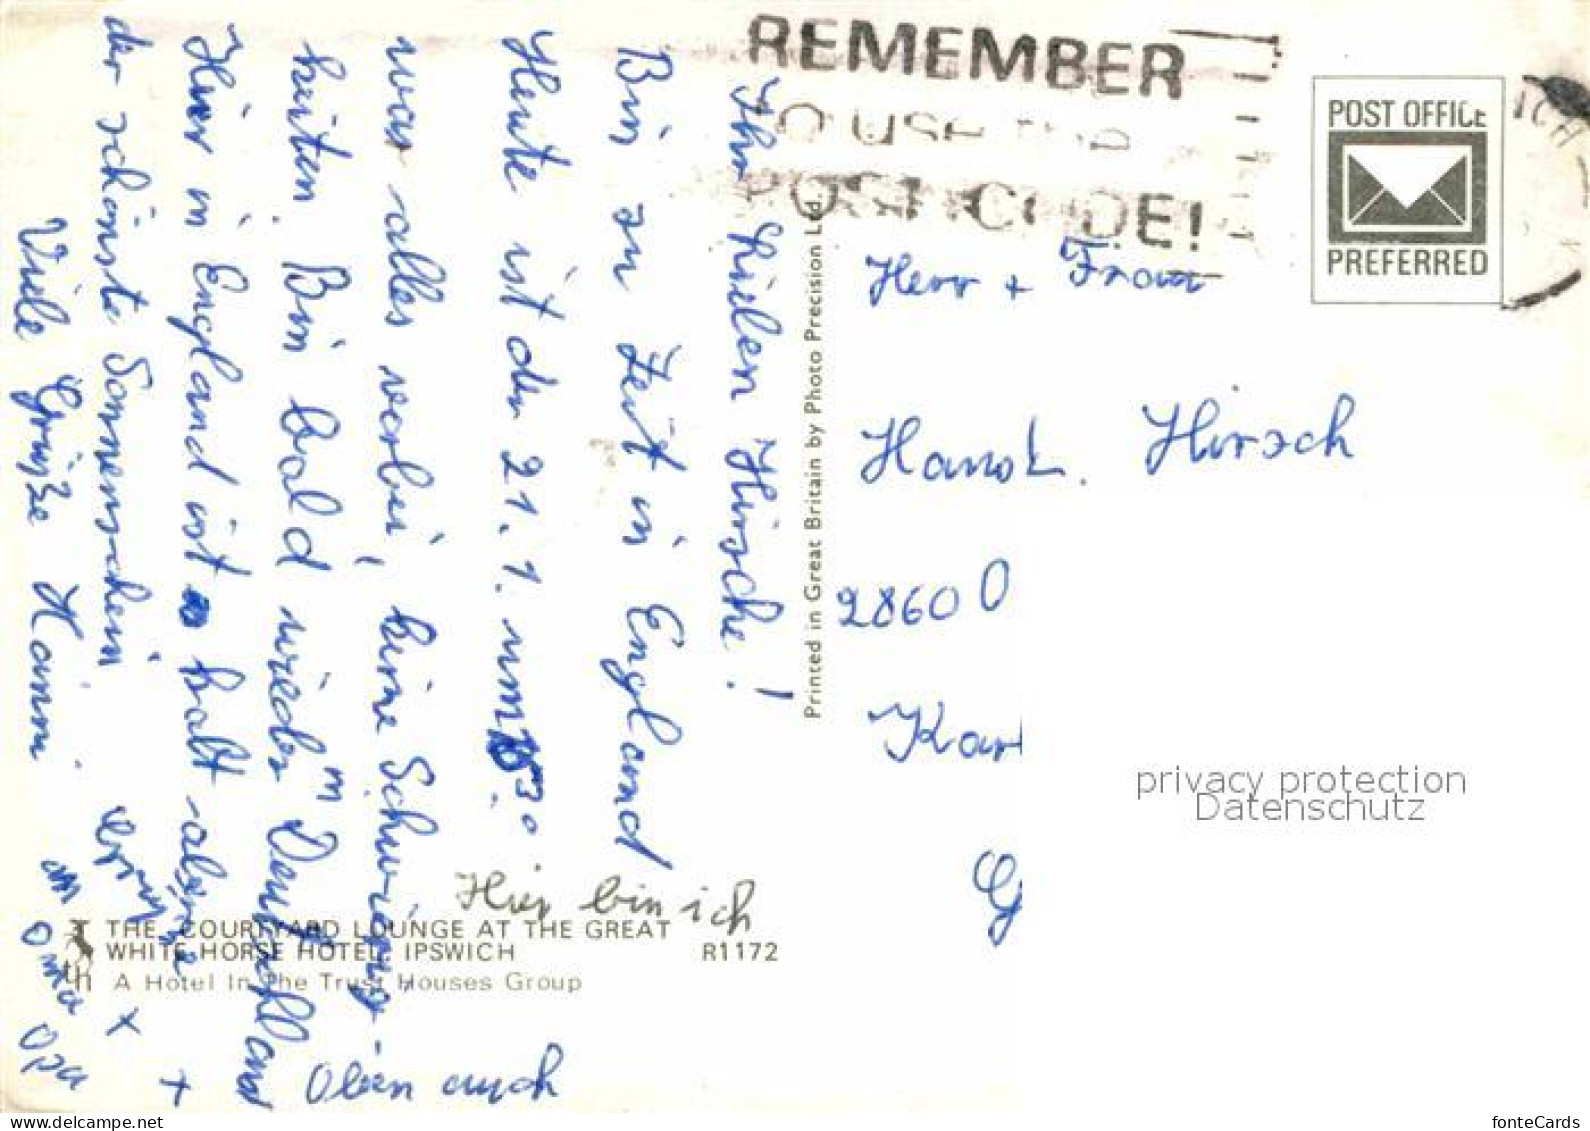 REMEMBER
TO USE THE
POST CODE!
POST OFFICE
PREFERRED
Ihr Lieben Hirsche!
Bin zur Zeit in England
Heute ist der 21. 1. um
war alles vorbei, keine Schwierig-
keiten. Bin bald wieder in Deutschland
Hier in England ist halt alerne
der schönste Sonnenschein
Viele Grüße Hanni
Grüße
an Oma
Opa
Oben auch
Hier bin ich
Herr + Frau
Hanst. Hirsch
2860 O
Kar
THE COURTYARD LOUNGE AT THE GREAT
WHITE HORSE HOTEL, IPSWICH R1172
A Hotel In the Trust Houses Group
Printed in Great Britain by Photo Precision Ltd.
privacy protection
Datenschutz
www.delcampe.net
fonteCards